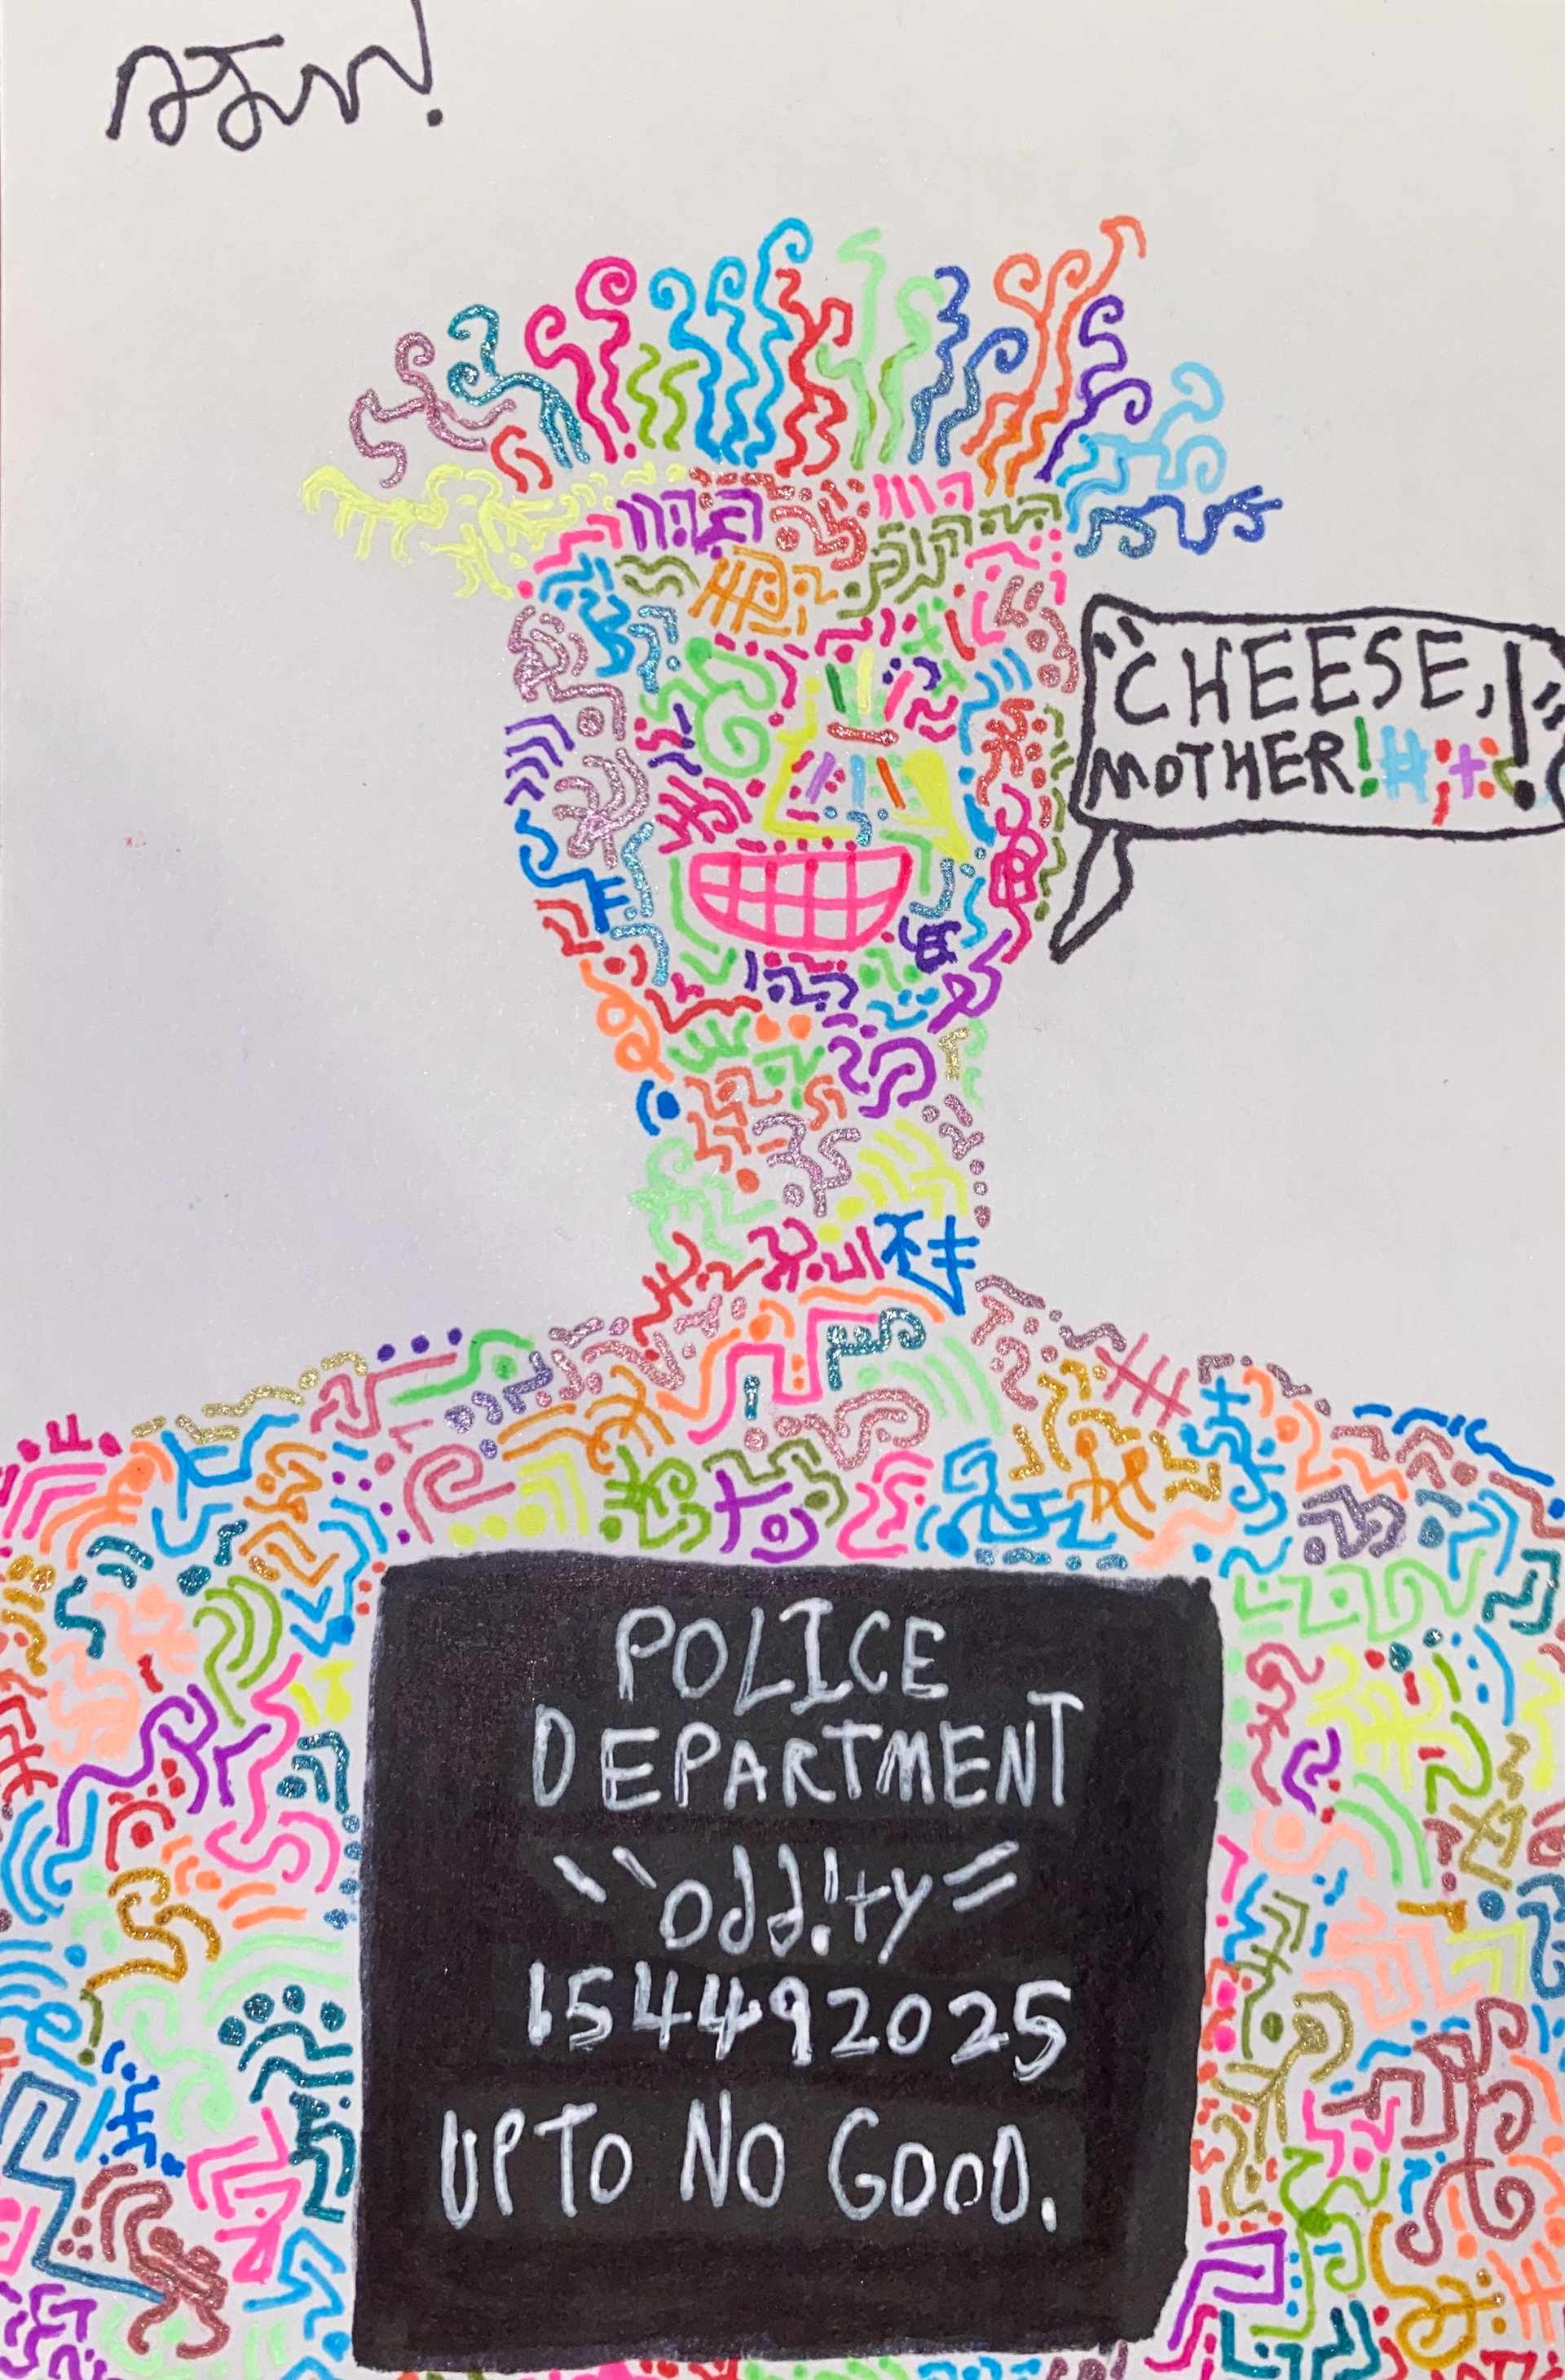 “CHEESE,
MOTHER!#;+:!”
POLICE
DEPARTMENT
“odd!ty”
154492025
UP TO NO GOOD.